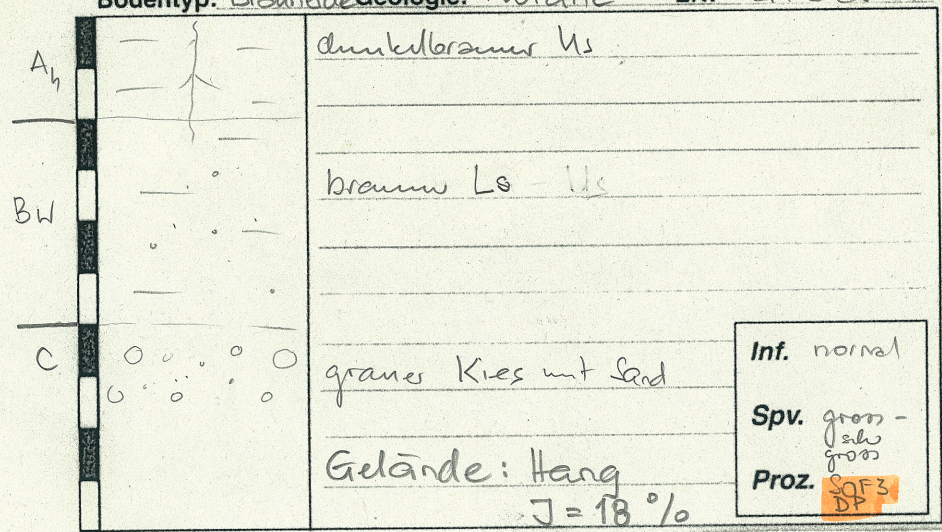 Bodentyp: Braunerde Geologie: Moräne
Ah
dunkelbrauner Us
BW
brauner Ls - Us
C
grauer Kies mit Sand
Gelände: Hang
J = 18 %
Inf. normal
Spv. gross -
sehr
gross
Proz. SOF3
DP